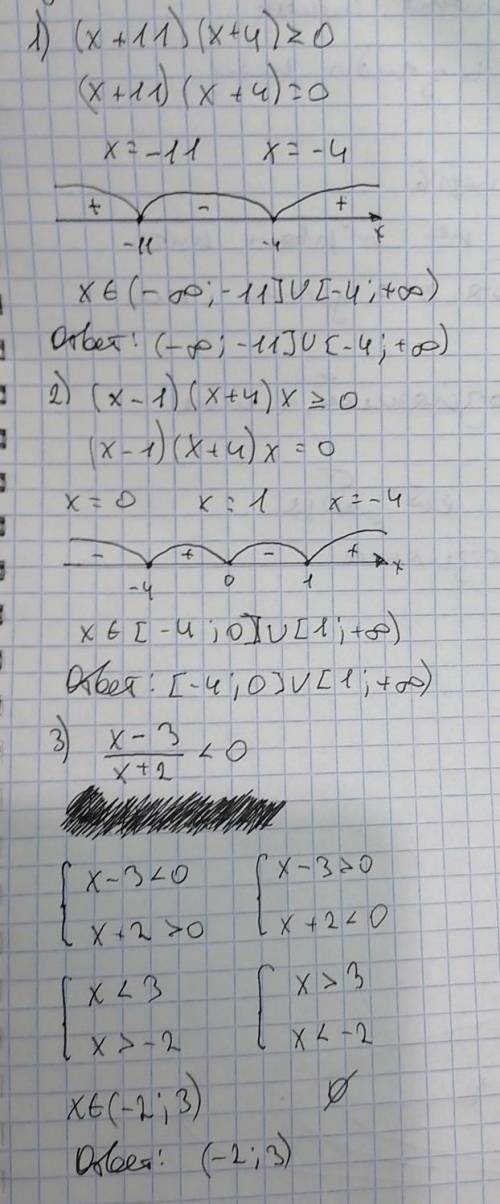 1) (x+11)(x+4)≥0
(x+11)(x+4)=0
x=-11 x=-4
+ - +
-11 -4 x
x∈(-∞;-11]∪[-4;+∞)
Ответ: (-∞;-11]∪[-4;+∞)
2) (x-1)(x+4)x≥0
(x-1)(x+4)x=0
x=0 x=1 x=-4
- + - +
-4 0 1 x
x∈[-4;0]∪[1;+∞)
Ответ: [-4;0]∪[1;+∞)
3) x-3/x+2<0
{x-3<0 {x-3>0
x+2>0 x+2<0
{x<3 {x>3
x>-2 x<-2
x∈(-2;3) ∅
Ответ: (-2;3)